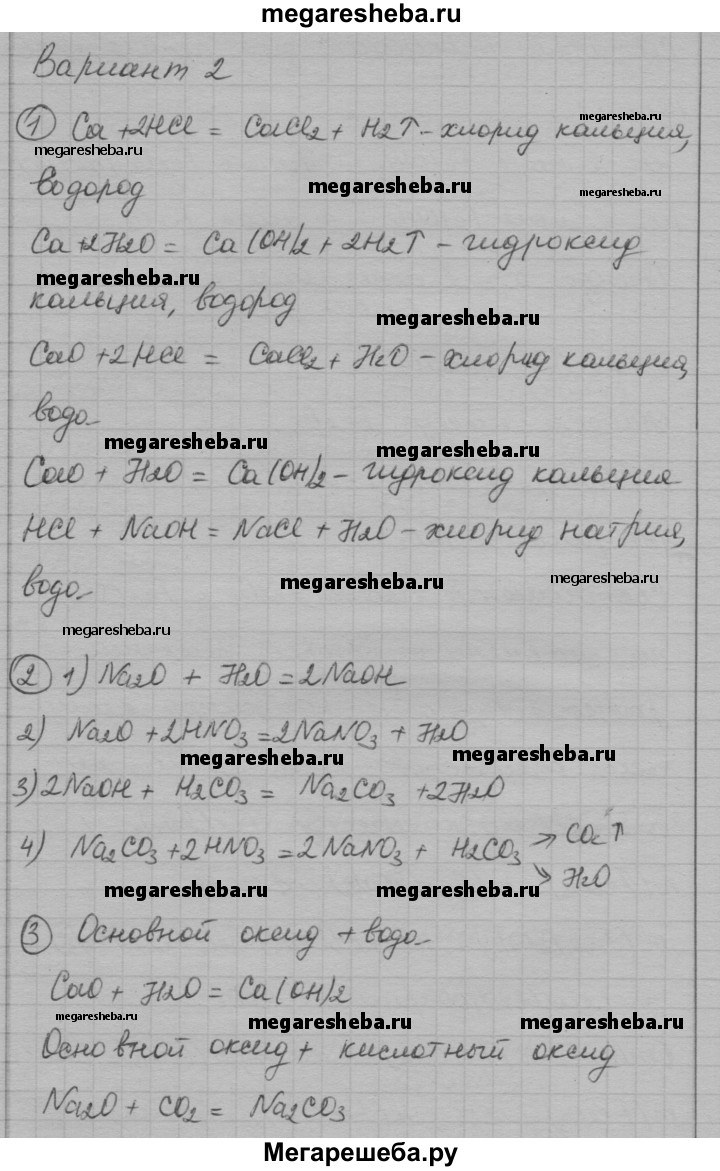 megaresheba.ru
Вариант 2
① Ca + 2HCl = CaCl2 + H2↑ - хлорид кальция,
megaresheba.ru
megaresheba.ru
водород
megaresheba.ru
megaresheba.ru
Ca + 2H2O = Ca(OH)2 + 2H2↑ - гидроксид
megaresheba.ru
кальция, водород
megaresheba.ru
CaO + 2HCl = CaCl2 + H2O - хлорид кальция,
вода
megaresheba.ru
megaresheba.ru
CaO + H2O = Ca(OH)2 - гидроксид кальция
HCl + NaOH = NaCl + H2O - хлорид натрия,
вода
megaresheba.ru
megaresheba.ru
megaresheba.ru
② 1) Na2O + H2O = 2NaOH
2) Na2O + 2HNO3 = 2NaNO3 + H2O
megaresheba.ru
megaresheba.ru
3) 2NaOH + H2CO3 = Na2CO3 + 2H2O
4) Na2CO3 + 2HNO3 = 2NaNO3 + H2CO3 → CO2↑
→ H2O
megaresheba.ru
megaresheba.ru
③ Основной оксид + вода
CaO + H2O = Ca(OH)2
megaresheba.ru
megaresheba.ru
megaresheba.ru
Основной оксид + кислотный оксид
Na2O + CO2 = Na2CO3
Мегарешеба.ру